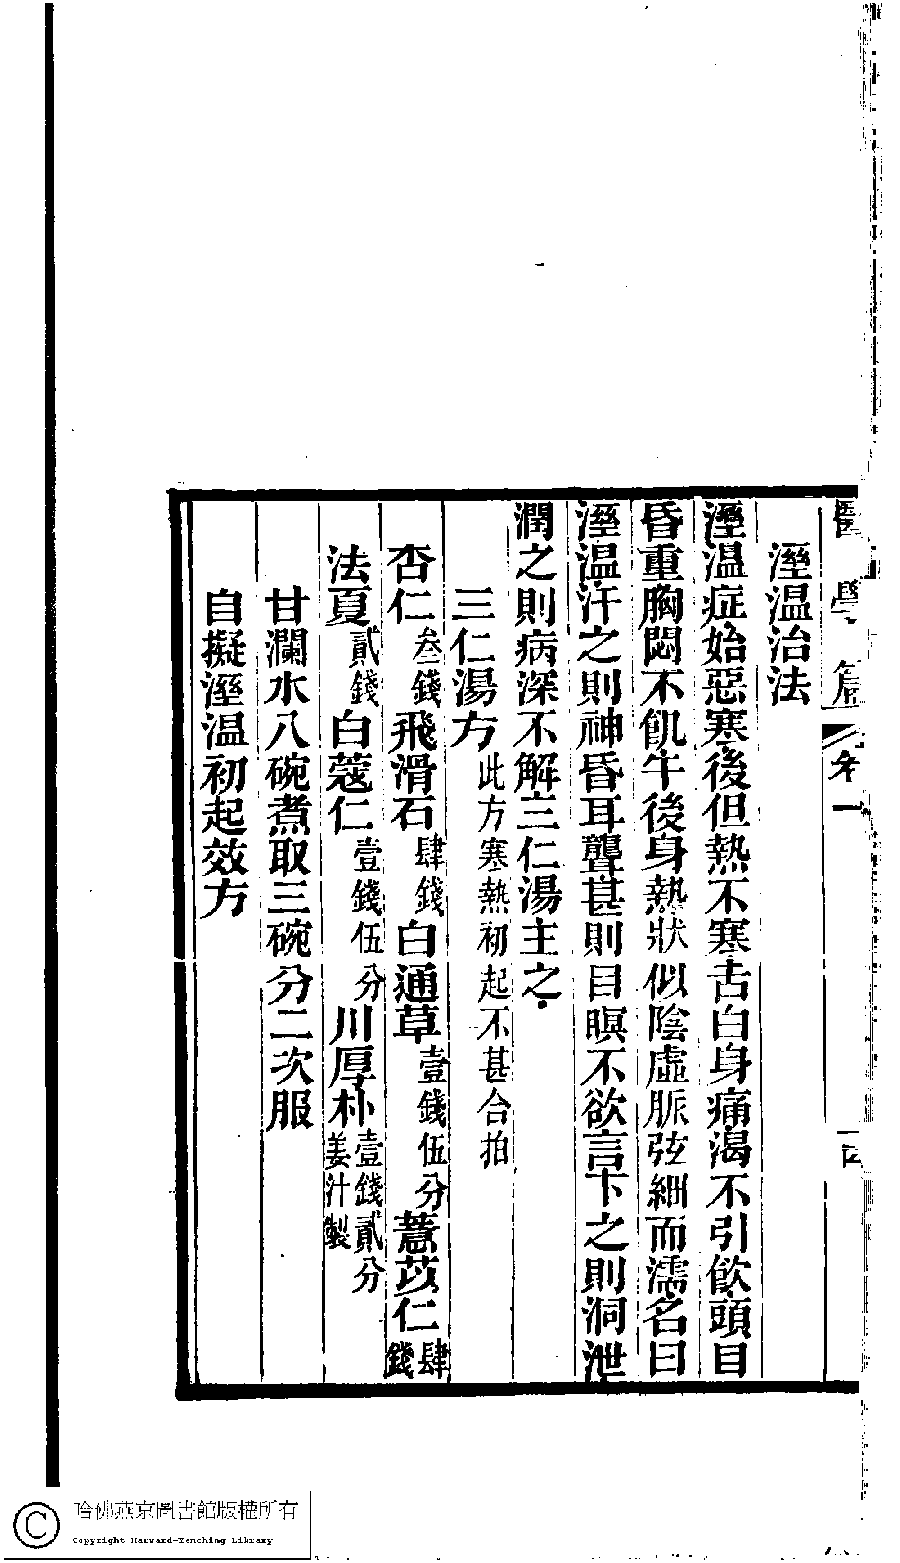 醫學篇 卷一
溼温治法
溼温症始惡寒後但熱不寒舌白身痛渴不引飲頭目
昏重胸悶不飢午後身熱狀似陰虛脈弦細而濡名曰
溼温汗之則神昏耳聾甚則目瞑不欲言下之則洞泄
潤之則病深不解三仁湯主之
三仁湯方 此方寒熱初起不甚合拍
杏仁叁錢 飛滑石肆錢 白通草壹錢伍分 薏苡仁肆錢
法夏貳錢 白蔻仁壹錢伍分 川厚朴壹錢貳分姜汁製
甘瀾水八碗煮取三碗分二次服
自擬溼温初起效方
哈佛燕京圖書館版權所有
Copyright Harvard-Yenching Library